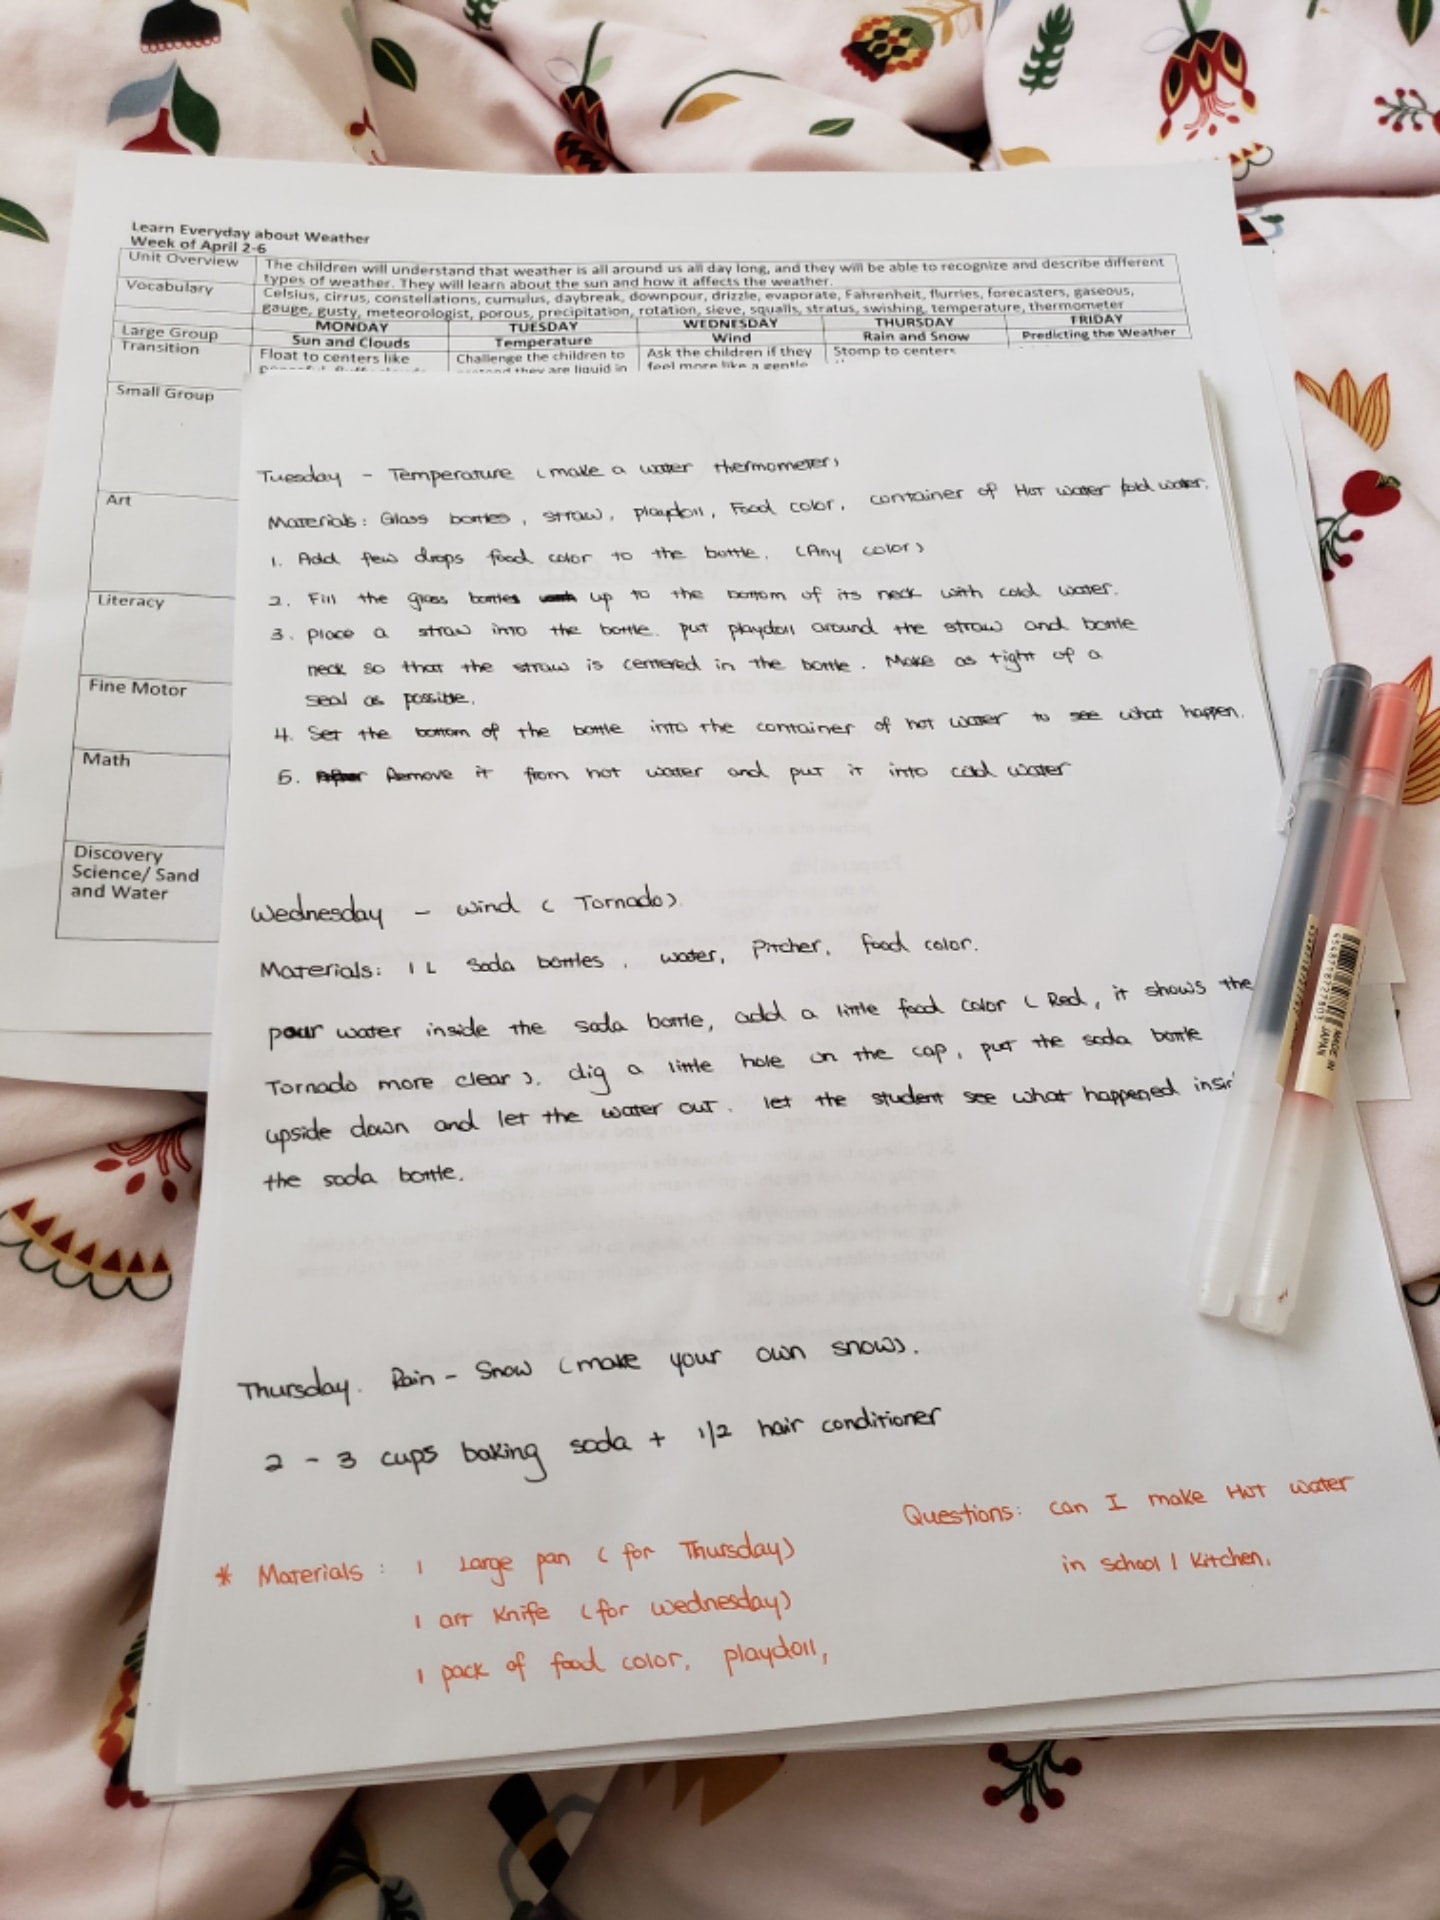 Learn Everyday about Weather
Week of April 2-6
Unit Overview The children will understand that weather is all around us all day long, and they will be able to recognize and describe different
types of weather. They will learn about the sun and how it affects the weather.
Vocabulary Celsius, cirrus, constellations, cumulus, daybreak, downpour, drizzle, evaporate, Fahrenheit, flurries, forecasters, gaseous,
gauge, gusty, meteorologist, porous, precipitation, rotation, sieve, squalls, stratus, swishing, temperature, thermometer
MONDAY TUESDAY WEDNESDAY THURSDAY FRIDAY
Large Group Sun and Clouds Temperature Wind Rain and Snow Predicting the Weather
Transition Float to centers like Challenge the children to Ask the children if they Stomp to centers
peaceful, fluffy clouds pretend they are liquid in feel more like a gentle
Small Group
Art
Literacy
Fine Motor
Math
Discovery
Science/ Sand
and Water
Tuesday - Temperature (make a water thermometer)
Materials: Glass bottles, straw, playdoll, Food color, container of Hot water /cold water.
1. Add few drops food color to the bottle. (Any color)
2. Fill the glass bottles up to the bottom of its neck with cold water.
3. place a straw into the bottle. put playdoll around the straw and bottle
neck so that the straw is centered in the bottle. Make as tight of a
seal as possible.
4. Set the bottom of the bottle into the container of hot water to see what happen.
5. Remove it from hot water and put it into cold water
Wednesday - wind ( Tornado).
Materials: 1 L soda bottles, water, Pitcher, food color.
pour water inside the soda bottle, add a little food color ( Red, it shows the
Tornado more clear). dig a little hole on the cap, put the soda bottle
upside down and let the water out. let the student see what happened insi
the soda bottle.
Thursday. Rain - Snow (make your own snow).
2 - 3 cups baking soda + 1/2 hair conditioner
Questions: can I make Hot water
in school / kitchen.
* Materials: 1 Large pan ( for Thursday)
1 art knife (for wednesday)
1 pack of food color, playdoll,
MADE IN
JAPAN